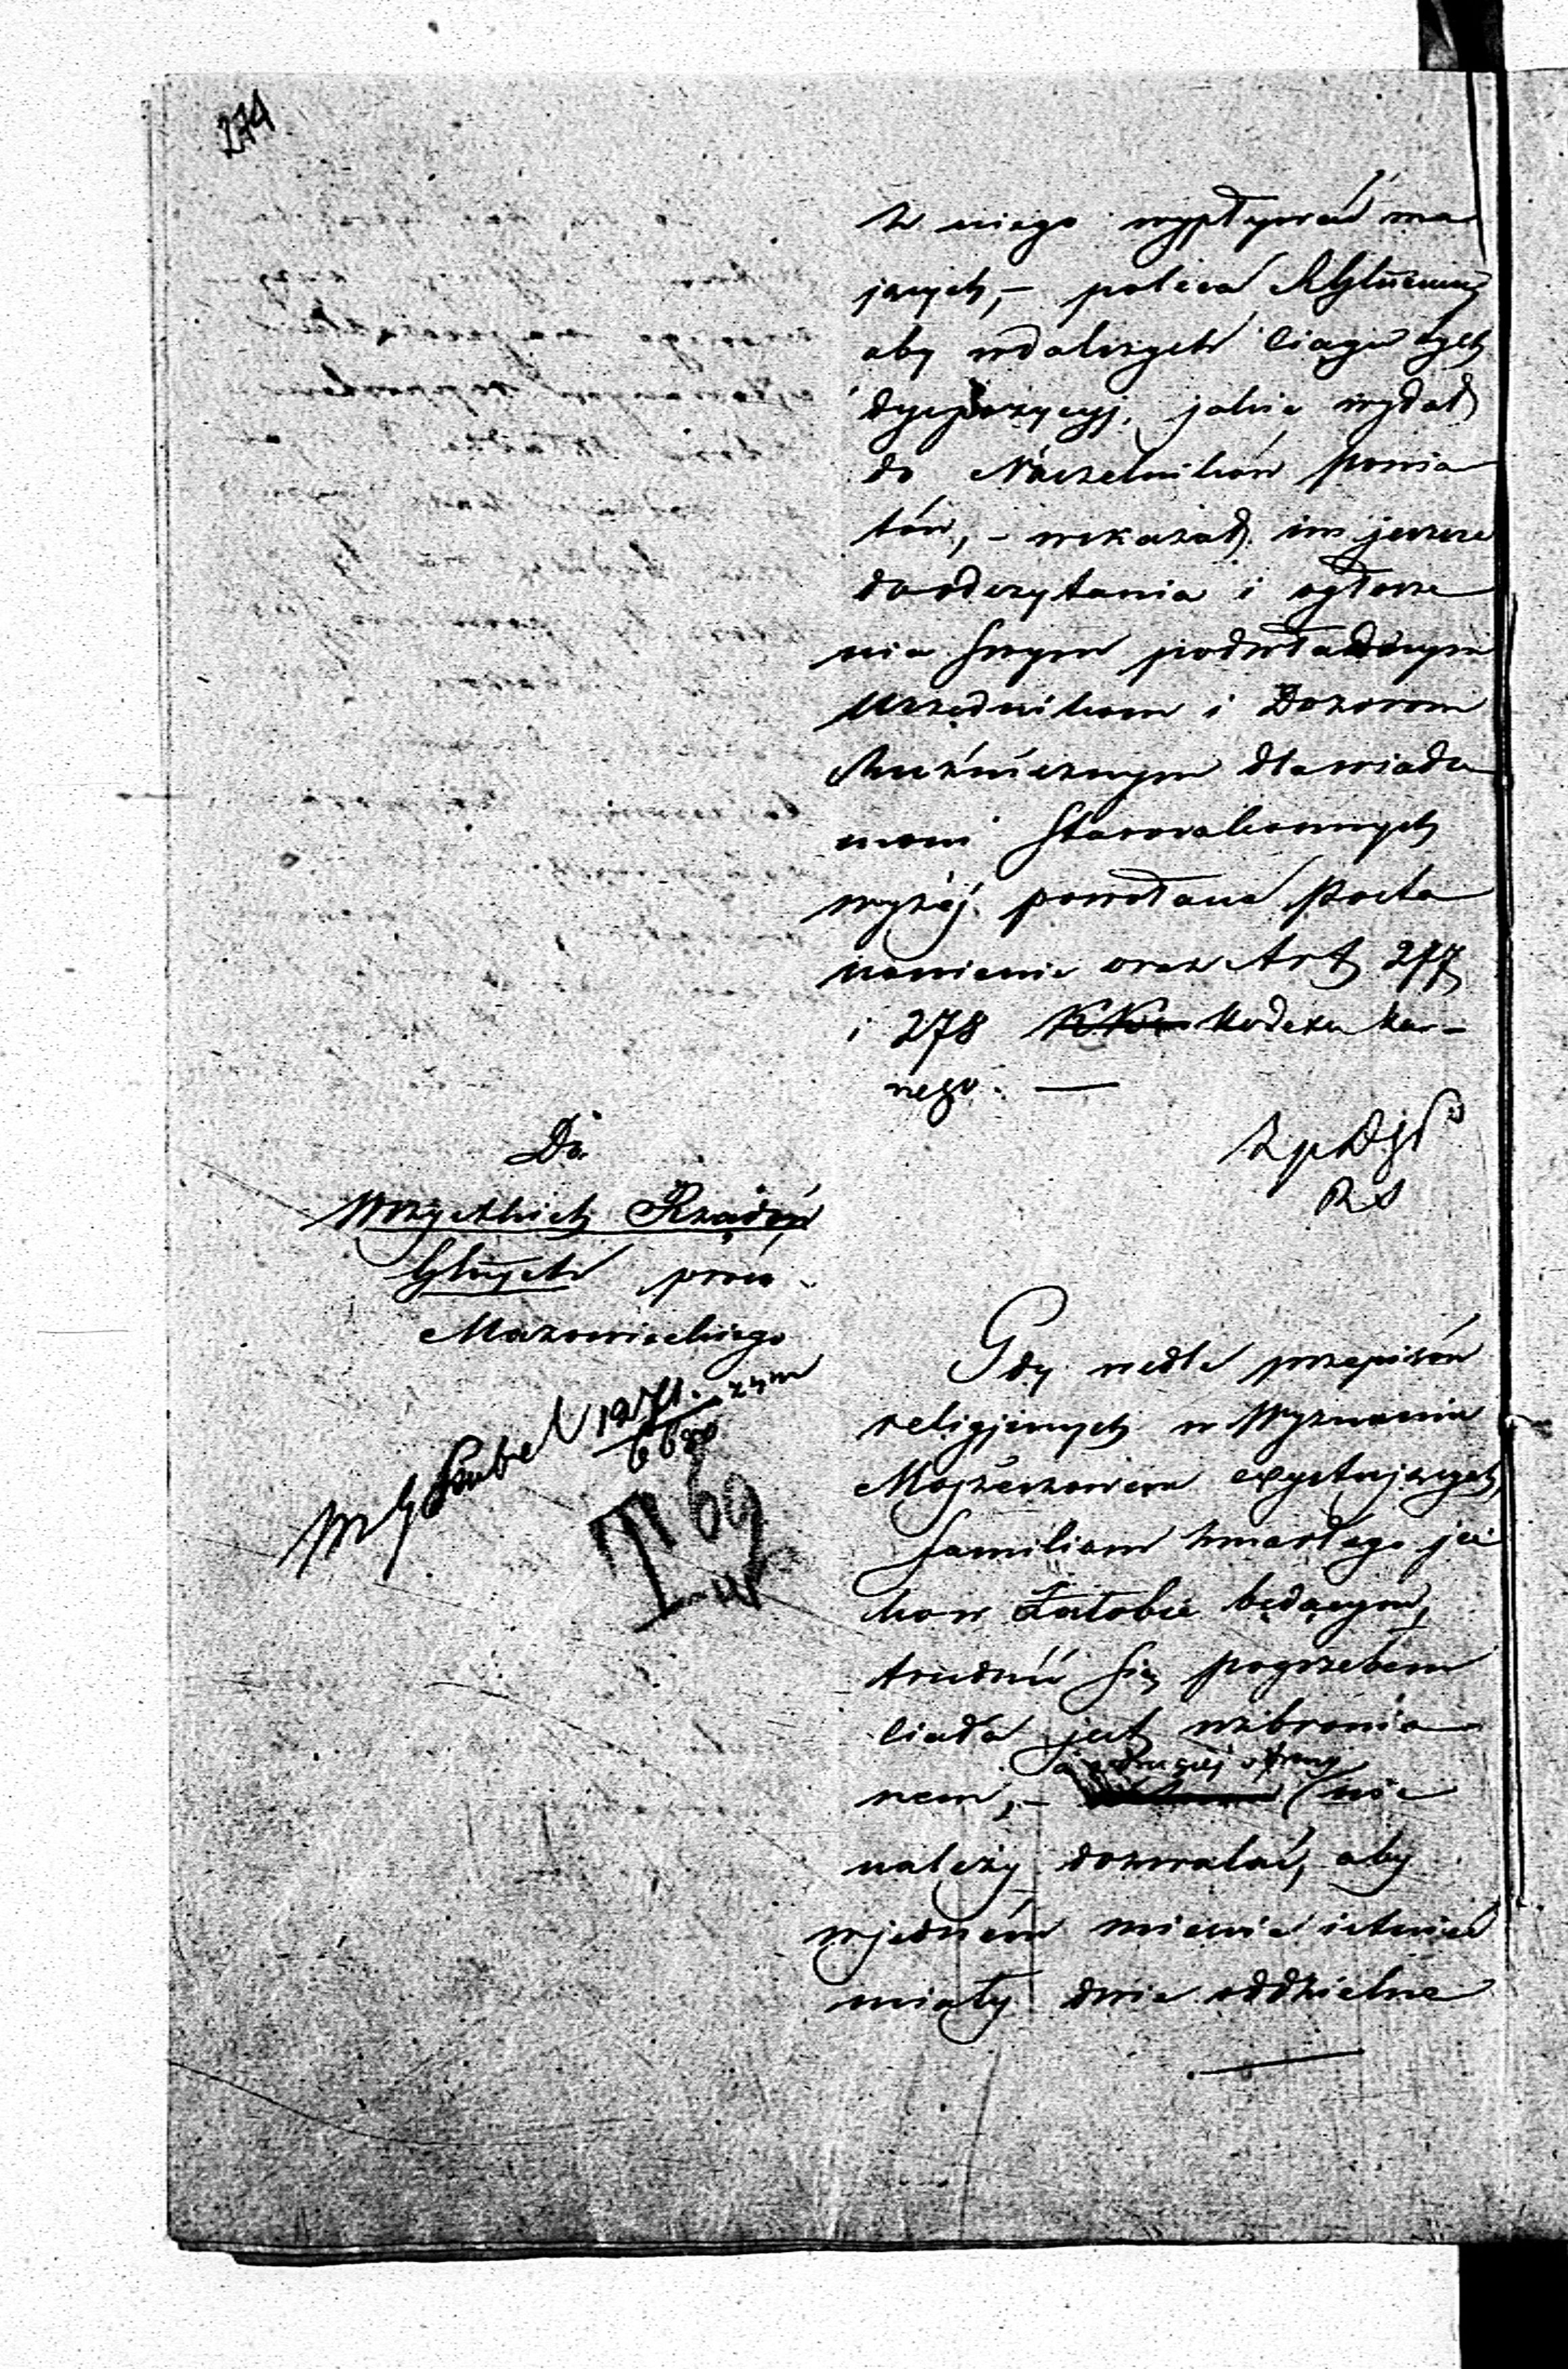 274
z niego wypływać ma
jących, – poleca RGbernij
aby w dalszych ciągu tych
dyspozycyj, jakie wydał
do Naczelników powia
tów, – wskazał im jeszcze
do odczytania i ogłosze
nia swym podwładnym
Urzędnikom i Dozorom
Bużnicznym dla wiado
mości Starozakonnych
wyżéj powołane Posta
nowienie oraz Art 277
i 278 Kodexu kar–
nego. —
Do
Wszystkich Rządów
Gbnych prócz
Mazowieckiego
Gdy wedle przepisów
religijnych w Wyznaniu
Mojżeszowem exystujących,
familiom zmarłego ja
ko w Żałobie będącym,
trudnić się pogrzebem
ciała jest wzbronio
nem, – a z drugiej strony nie
należy dozwalać, aby
w jedném mieście istnieć
miały dwie oddzielne